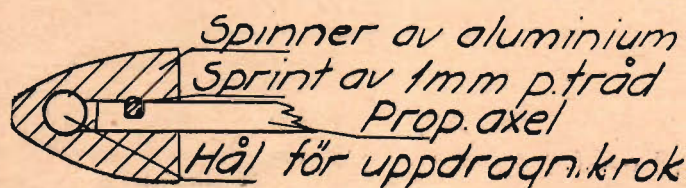 Spinner av aluminium
Sprint av 1mm p.tråd
Prop.axel
Hål för uppdragn.krok